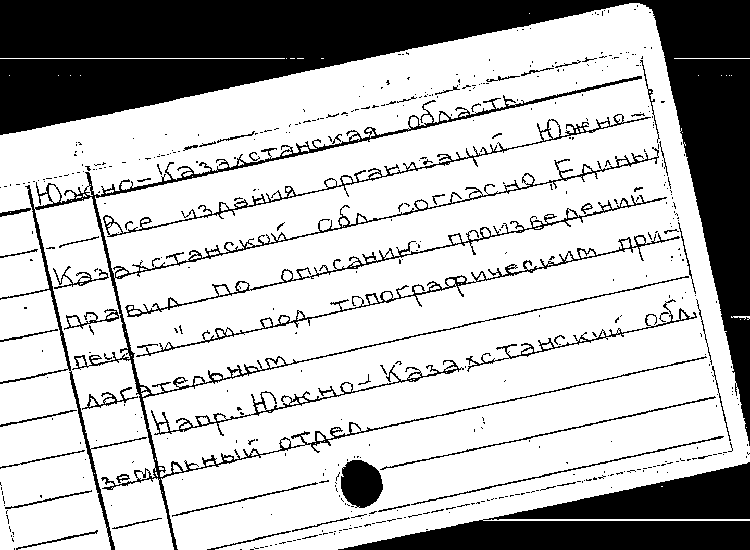 Южно-Казахстанская область.
Все издания организаций Южно-
Казахстанской обл. согласно „Единых
правил по описанию произведений
печати" см. под топографическим при-
лагательным.
Напр.: Южно-Казахстанский обл.
земельный отдел.